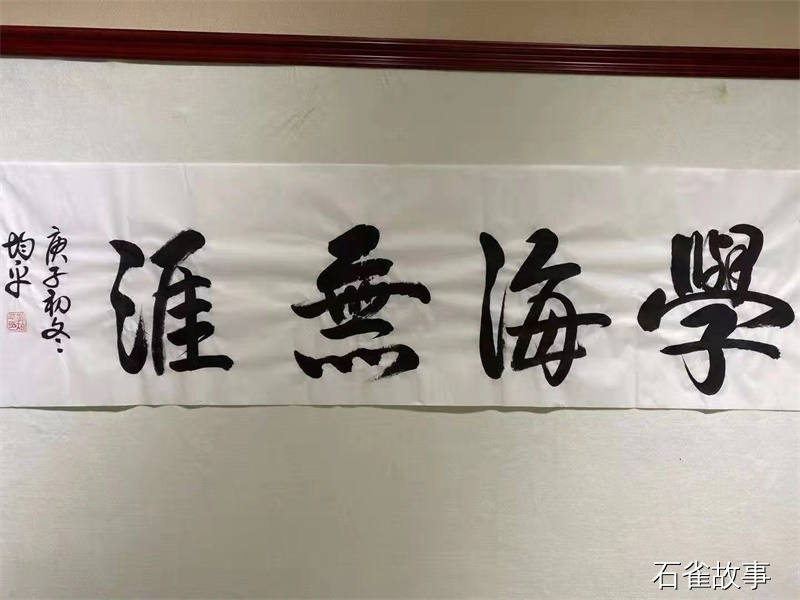 學海無涯
庚子初冬
均平
石雀故事